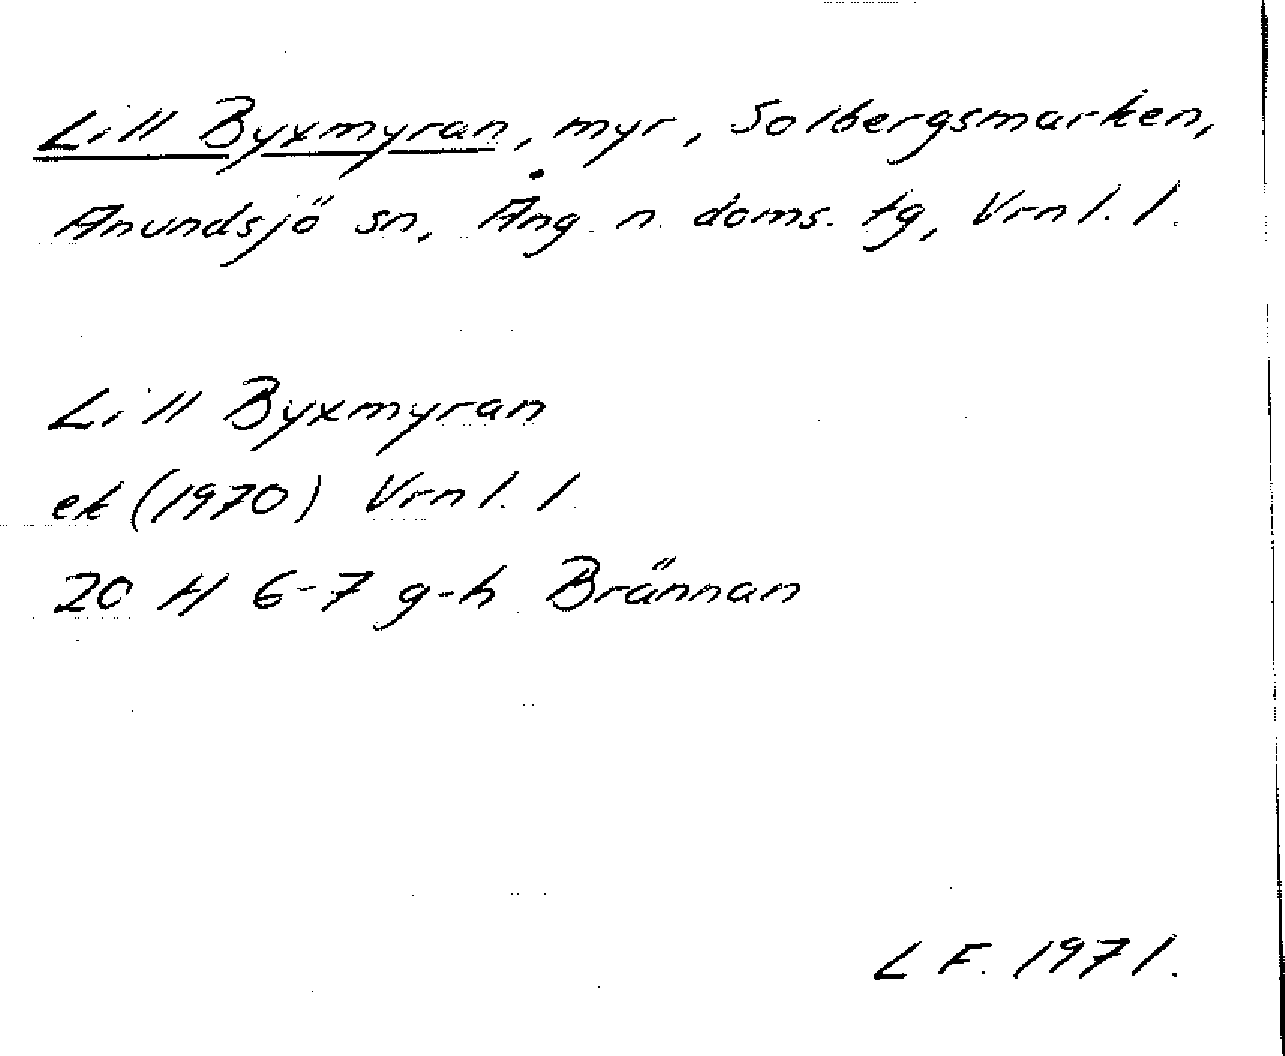 Lill Byxmyran, myr, Solbergsmarken,
Anundsjö sn, Ång. n. doms. tg, Vrnl. l.
Lill Byxmyran
ek (1970) Vrnl. l.
20 H 6-7 g-h Brännan
L F. 1971.